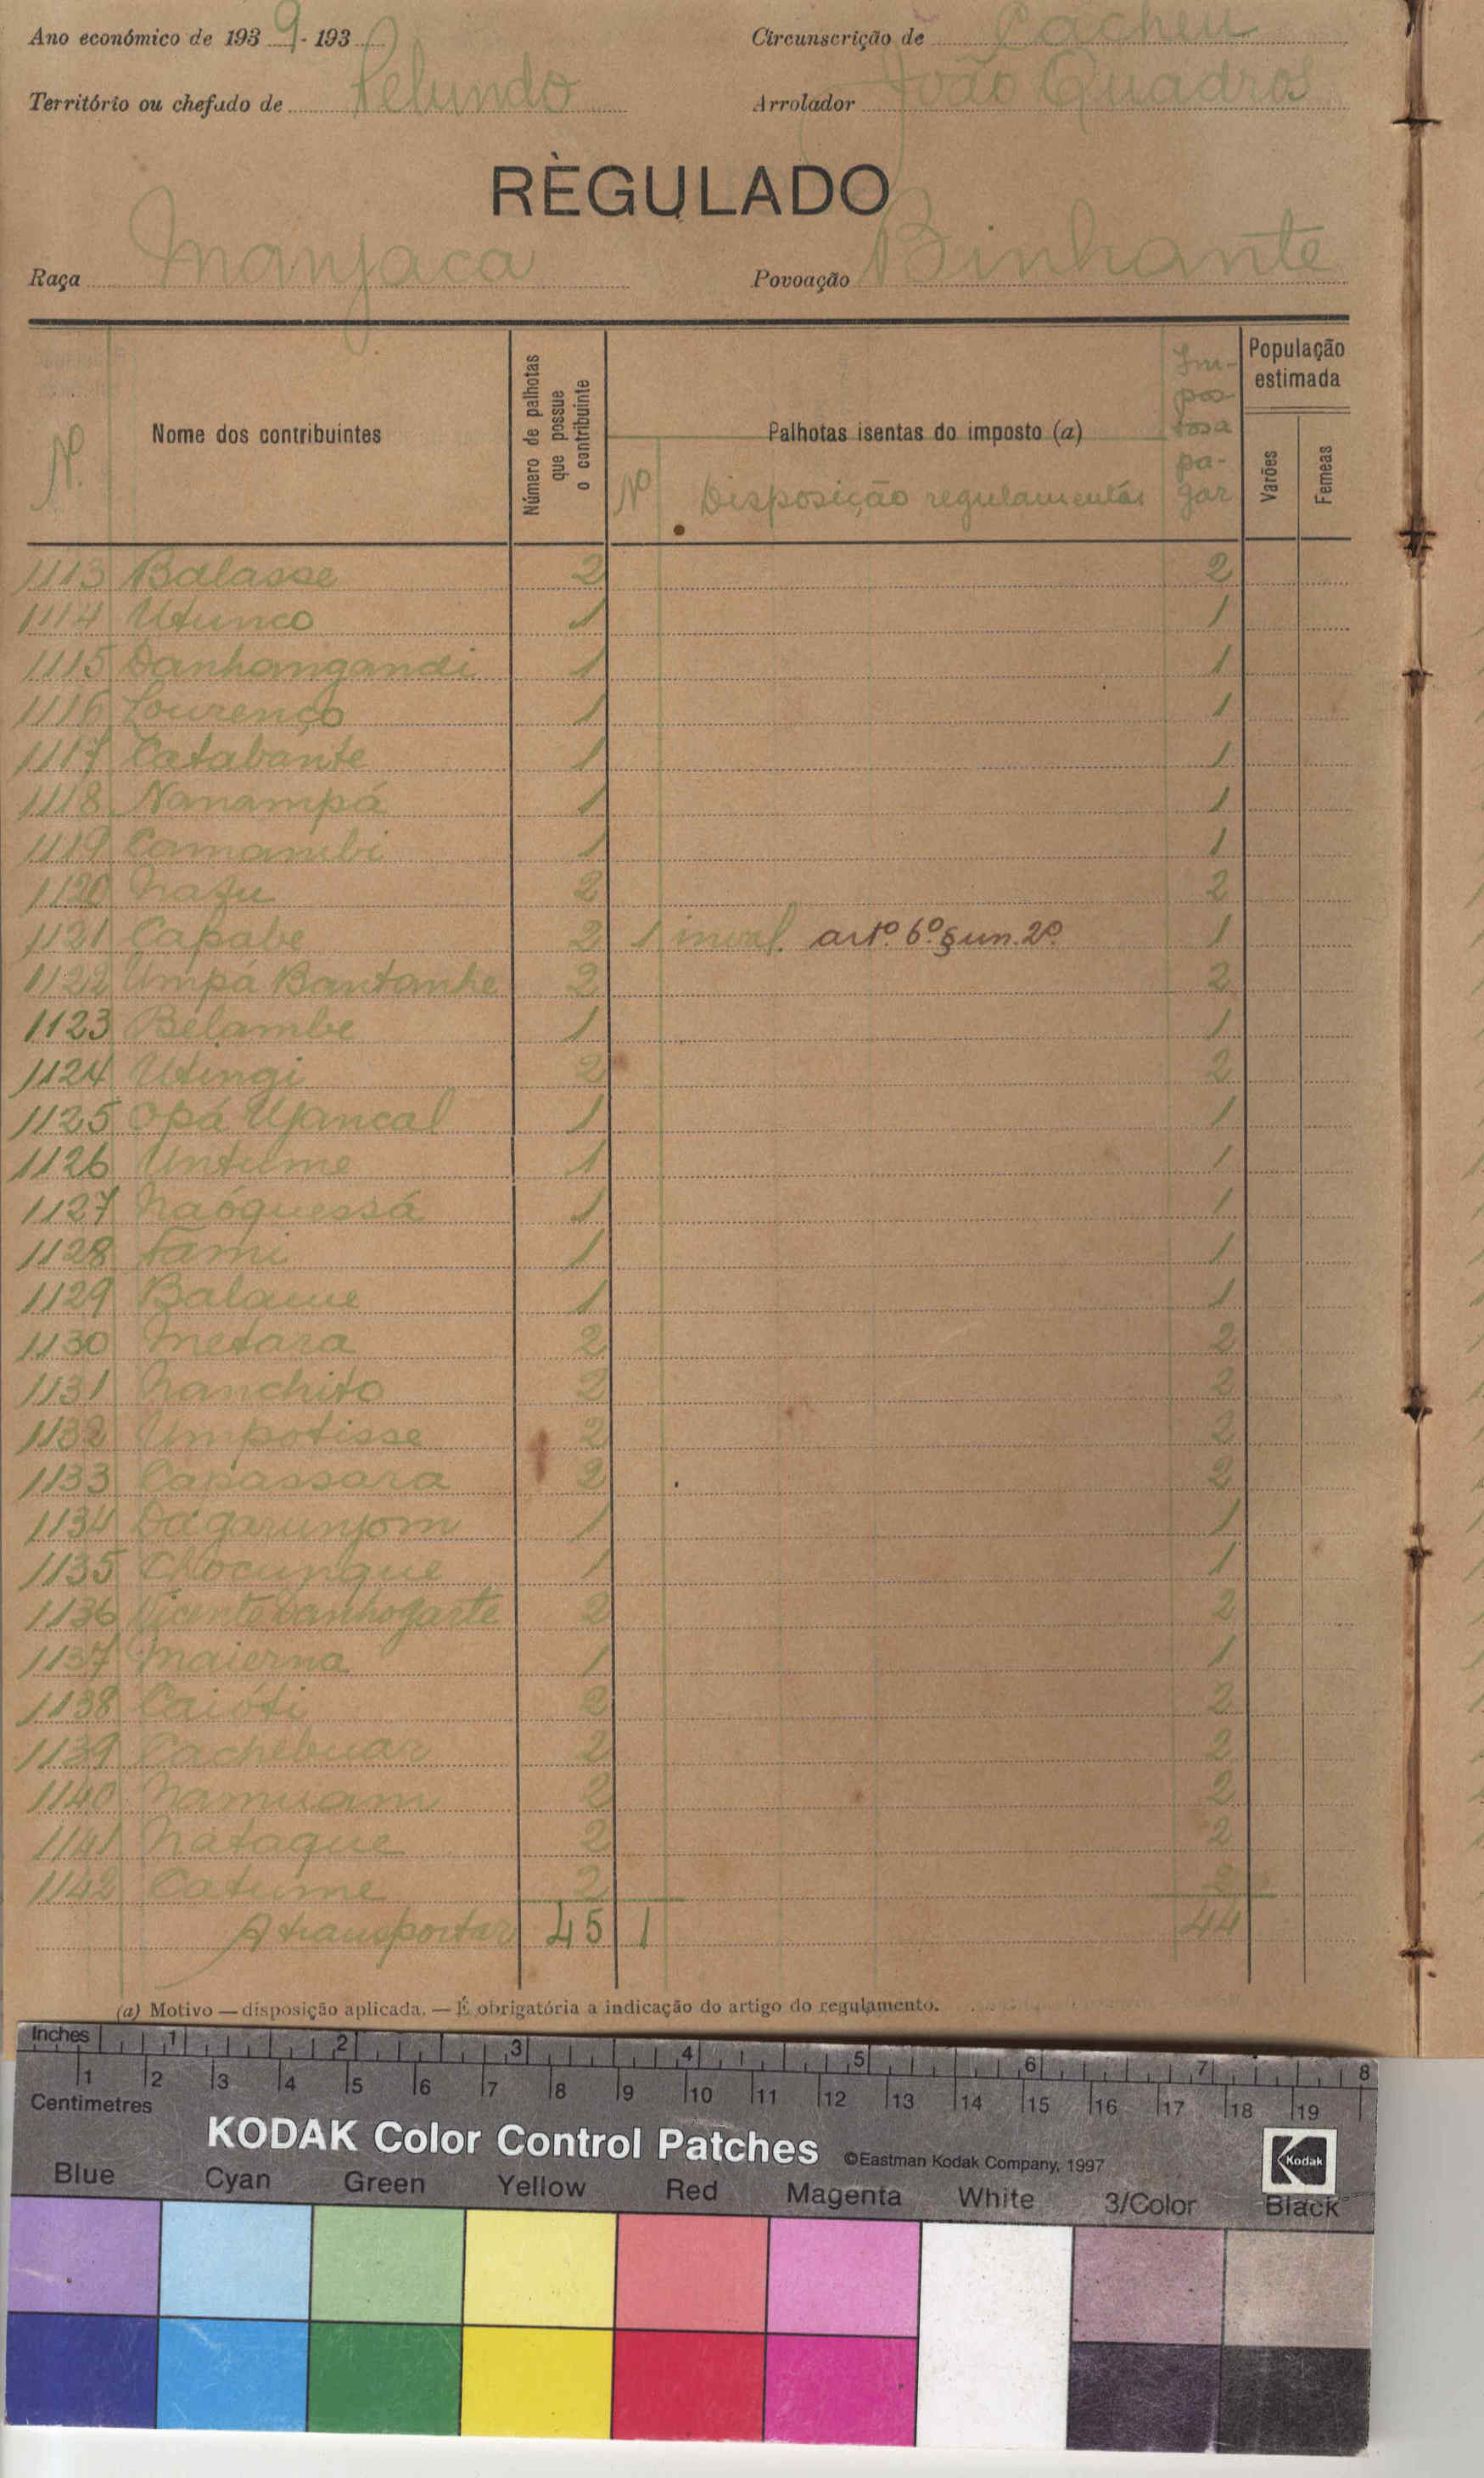 Ano económico de 1939-193
Circunscrição de Cacheu
Território ou chefado de Pelundo
Arrolador João Quadros
RÈGULADO
Raça Manjaca
Povoação Binhante
Nº
Nome dos contribuintes
Número de palhotas que possue o contribuinte
Palhotas isentas do imposto (a)
Nº Disposição regulamentár
Im-
pos-
tos a
pa-
gar
População estimada
Varões
Femeas
1113 Balasse 2 2
1114 Utunco 1 1
1115 Danhangandi 1 1
1116 Lourenço 1 1
1117 Catabante 1 1
1118 Nanampá 1 1
1119 Camambi 1 1
1120 Nafu 2 2
1121 Capabe 2 1 inval. artº. 6º. § un. 2º 1
1122 Umpá Bantanhe 2 2
1123 Belambe 1 1
1124 Utingi 2 2
1125 Opá Ujancal 1 1
1126 Untume 1 1
1127 Naóquessá 1 1
1128 Fami 1 1
1129 Balaume 1 1
1130 Metara 2 2
1131 Nanchito 2 2
1132 Umpotisse 2 2
1133 Capassara 2 2
1134 Dágarunjom 1 1
1135 Chocungue 1 1
1136 Vicente Danhogarte 2 2
1137 Maierna 1 1
1138 Caióti 2 2
1139 Cachebuar 2 2
1140 Namuam 2 2
1141 Nataque 2 2
1142 Catume 2 2
A transportar 45 1 44
(a) Motivo — disposição aplicada. — É obrigatória a indicação do artigo do regulamento.
Inches 1 2 3 4 5 6 7 8
1 2 3 4 5 6 7 8 9 10 11 12 13 14 15 16 17 18 19
Centimetres
KODAK Color Control Patches ©Eastman Kodak Company, 1997 Kodak
Blue Cyan Green Yellow Red Magenta White 3/Color Black